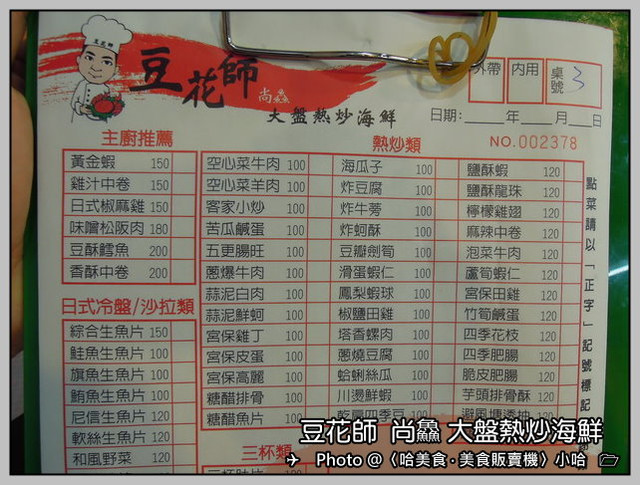 豆花師
豆花師
尚鱻
大盤熱炒海鮮
外帶 内用 桌號 3
日期: 年 月 日
NO.002378
主廚推薦
黃金蝦 150
雞汁中卷 150
日式椒麻雞 150
味噌松阪肉 180
豆酥鱈魚 200
香酥中卷 200
日式冷盤/沙拉類
綜合生魚片 150
鮭魚生魚片 100
旗魚生魚片 100
鮪魚生魚片 100
尼信生魚片 120
軟絲生魚片 120
和風野菜 120
熱炒類
空心菜牛肉 100
空心菜羊肉 100
客家小炒 100
苦瓜鹹蛋 100
五更腸旺 100
蔥爆牛肉 100
蒜泥白肉 100
蒜泥鮮蚵 100
宮保雞丁 100
宮保皮蛋 100
宮保高麗 100
糖醋排骨 100
糖醋魚片 100
三杯類
海瓜子 100
炸豆腐 100
炸牛蒡 100
炸蚵酥 100
豆瓣劍筍 100
滑蛋蝦仁 100
鳳梨蝦球 100
椒鹽田雞 100
塔香螺肉 100
蔥燒豆腐 100
蛤蜊絲瓜 100
川燙鮮蝦 100
乾扁四季豆 100
鹽酥蝦 120
鹽酥龍珠 120
檸檬雞翅 120
麻辣中卷 120
泡菜牛肉 120
蘆筍蝦仁 120
宮保田雞 120
竹筍鹹蛋 120
四季花枝 120
四季肥腸 120
脆皮肥腸 120
芋頭排骨酥 120
避風塘透抽 120
點菜請以「正字」記號標記
豆花師 尚鱻 大盤熱炒海鮮
Photo @〈哈美食‧美食販賣機〉小哈